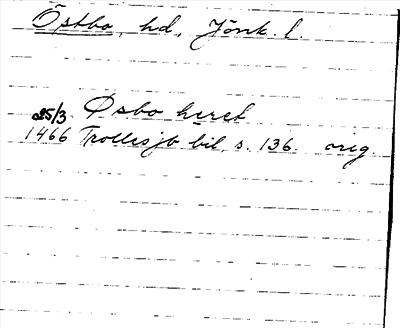 Östbo, hd, Jönk. l.
25/3 Øsbo heret
1466 Trollesjö bil, s. 136. orig.